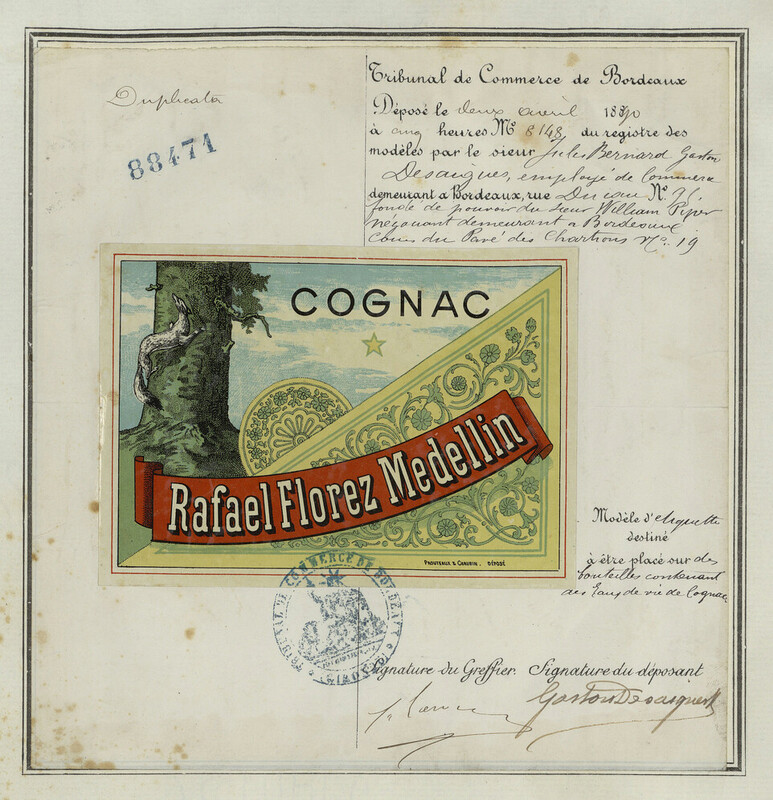 Duplicata
88471
Tribunal de Commerce de Bordeaux
Déposé le deux avril 1890
à cinq heures Nº 8148 du registre des
modèles par le sieur Jules Bernard Gaston
Desaigues, employé de Commerce
demeurant a Bordeaux, rue Nº
fondé de pouvoir du sieur William Piper
négociant demeurant a Bordeaux
Cours du Pavé des Chartrons Nº 19
COGNAC
Rafael Florez Medellin
PROUTEAUX & CHAURIN. DÉPOSÉ
Modèle d'etiquette
destiné
à être placé sur des
bouteilles contenant
des Eaux de vie de Cognac
TRIBUNAL DE COMMERCE DE BORDEAUX
(GIRONDE)
Signature du Greffier. Signature du déposant
Gaston Desaigues